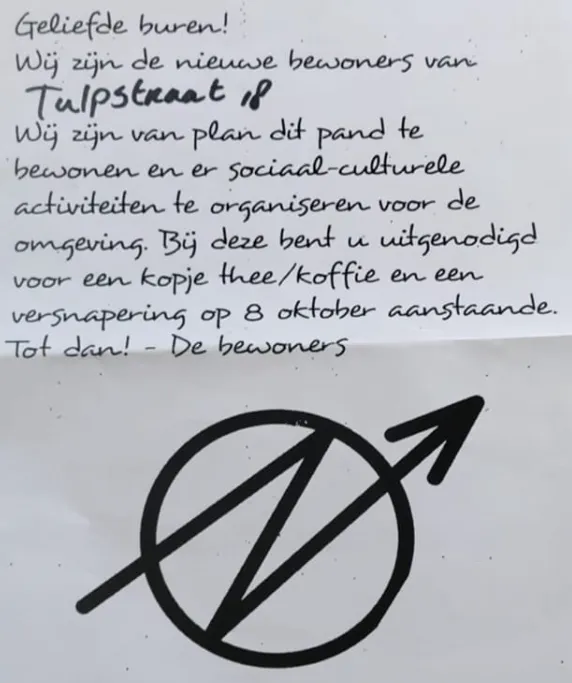 Geliefde buren!
Wij zijn de nieuwe bewoners van
Tulpstraat 18
Wij zijn van plan dit pand te
bewonen en er sociaal-culturele
activiteiten te organiseren voor de
omgeving. Bij deze bent u uitgenodigd
voor een kopje thee/koffie en een
versnapering op 8 oktober aanstaande.
Tot dan! - De bewoners